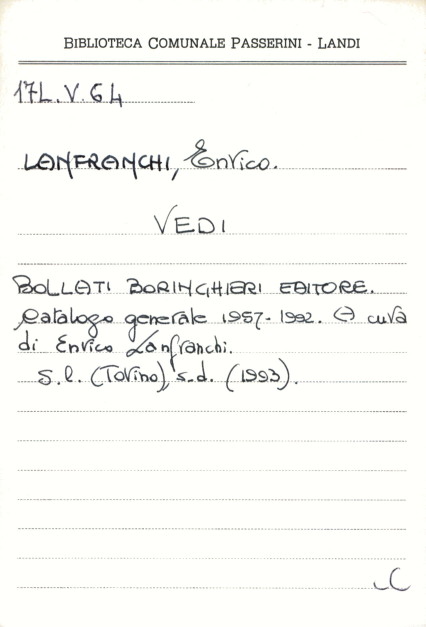 BIBLIOTECA COMUNALE PASSERINI - LANDI
17L.V.64
LANFRANCHI, Enrico.
VEDI
BOLLATI BORINGHIERI EDITORE.
Catalogo generale 1957-1992. A cura
di Enrico Lanfranchi.
S.l. (Torino), s.d. (1993).